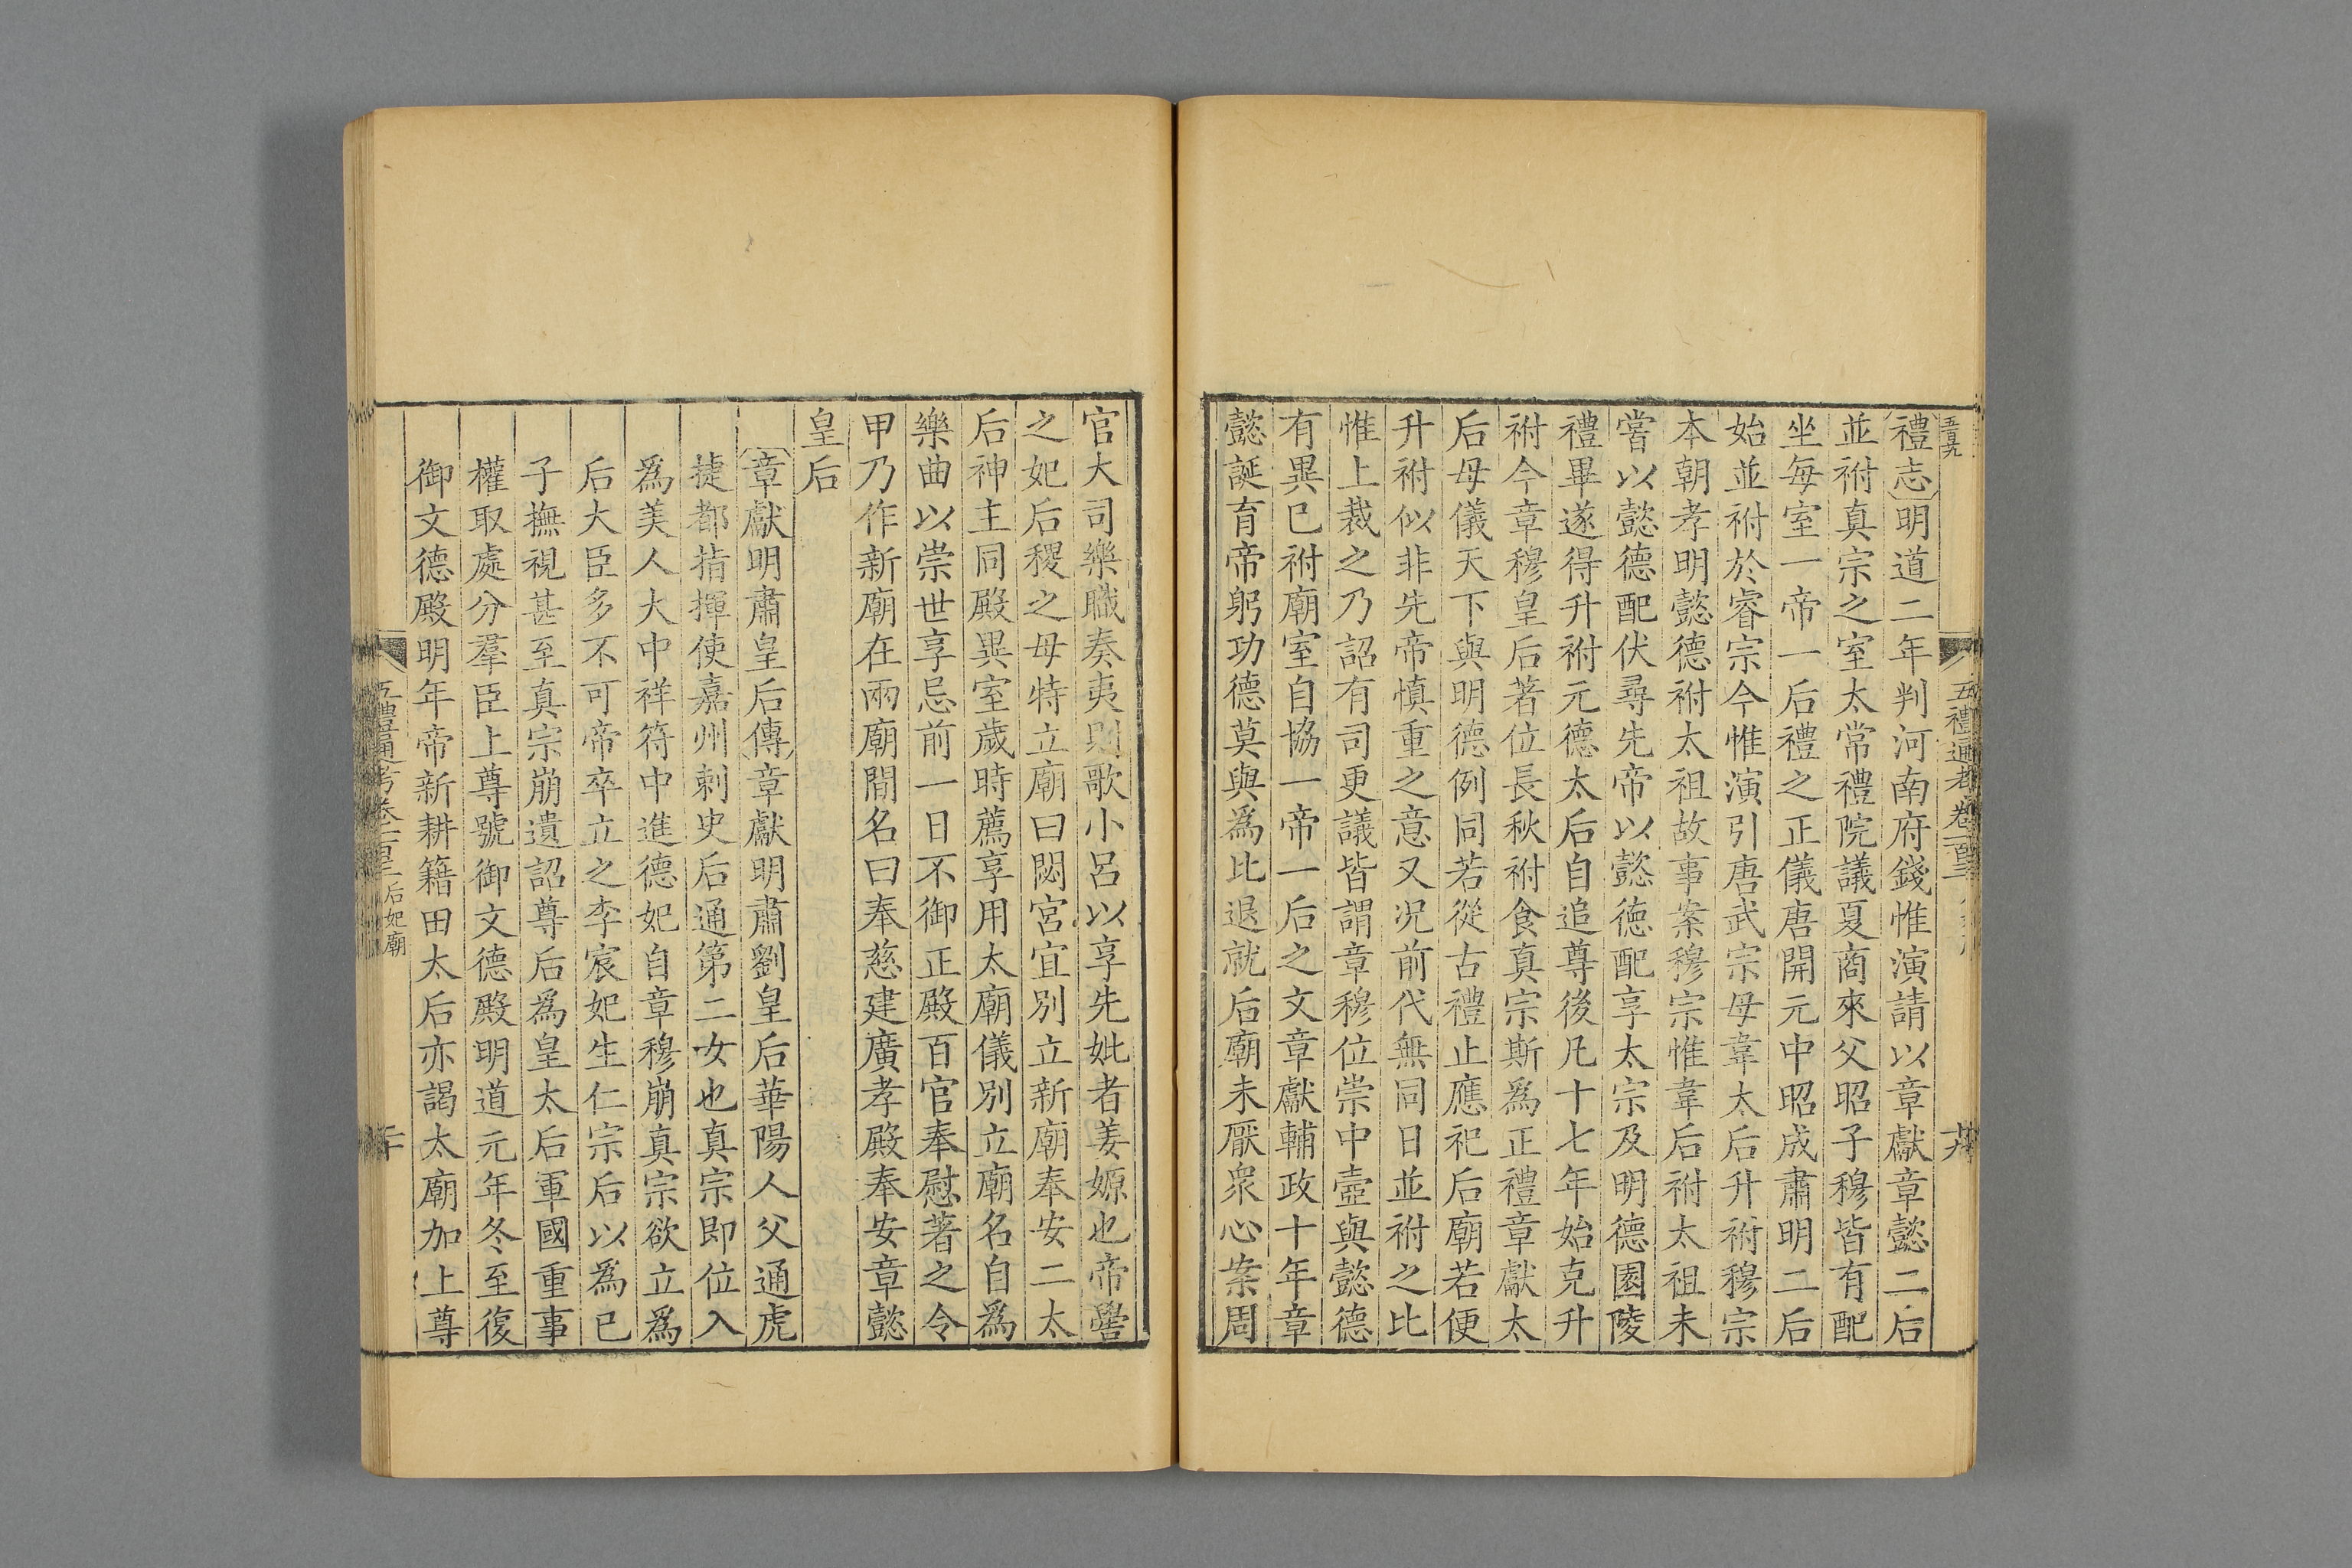 五禮通考卷一百三
禮志明道二年判河南府錢惟演請以章獻章懿二后
並祔真宗之室太常禮院議夏商來父昭子穆皆有配
坐每室一帝一后禮之正儀唐開元中昭成肅明二后
始並祔於睿宗今惟演引唐武宗母韋太后升祔穆宗
本朝孝明懿德祔太祖故事案穆宗惟韋后祔太祖未
嘗以懿德配伏尋先帝以懿德配享太宗及明德園陵
禮畢遂得升祔元德太后自追尊後凡十七年始克升
祔今章穆皇后著位長秋祔食真宗斯爲正禮章獻太
后母儀天下與明德例同若從古禮止應祀后廟若便
升祔似非先帝慎重之意又況前代無同日並祔之比
惟上裁之乃詔有司更議皆謂章穆位崇中壼與懿德
有異已祔廟室自協一帝一后之文章獻輔政十年章
懿誕育帝躬功德莫與爲比退就后廟未厭衆心案周
官大司樂職奏夷則歌小呂以享先妣者姜嫄也帝嚳
之妃后稷之母特立廟曰閟宮宜別立新廟奉安二太
后神主同殿異室歲時薦享用太廟儀別立廟名自爲
樂曲以崇世享忌前一日不御正殿百官奉慰著之令
甲乃作新廟在兩廟間名曰奉慈建廣孝殿奉安章懿
皇后
章獻明肅皇后傳章獻明肅劉皇后華陽人父通虎
捷都指揮使嘉州刺史后通第二女也真宗即位入
爲美人大中祥符中進德妃自章穆崩真宗欲立爲
后大臣多不可帝卒立之李宸妃生仁宗后以爲已
子撫視甚至真宗崩遺詔尊后爲皇太后軍國重事
權取處分羣臣上尊號御文德殿明道元年冬至復
御文德殿明年帝新耕籍田太后亦謁太廟加上尊
五禮通考卷一百三 后妃廟 二十